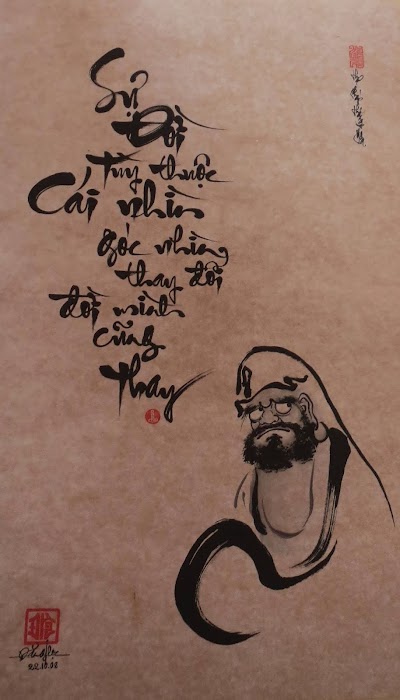 Sự
Đời
tùy thuộc
Cái nhìn
góc nhìn
thay đổi
đời mình
cũng
thay